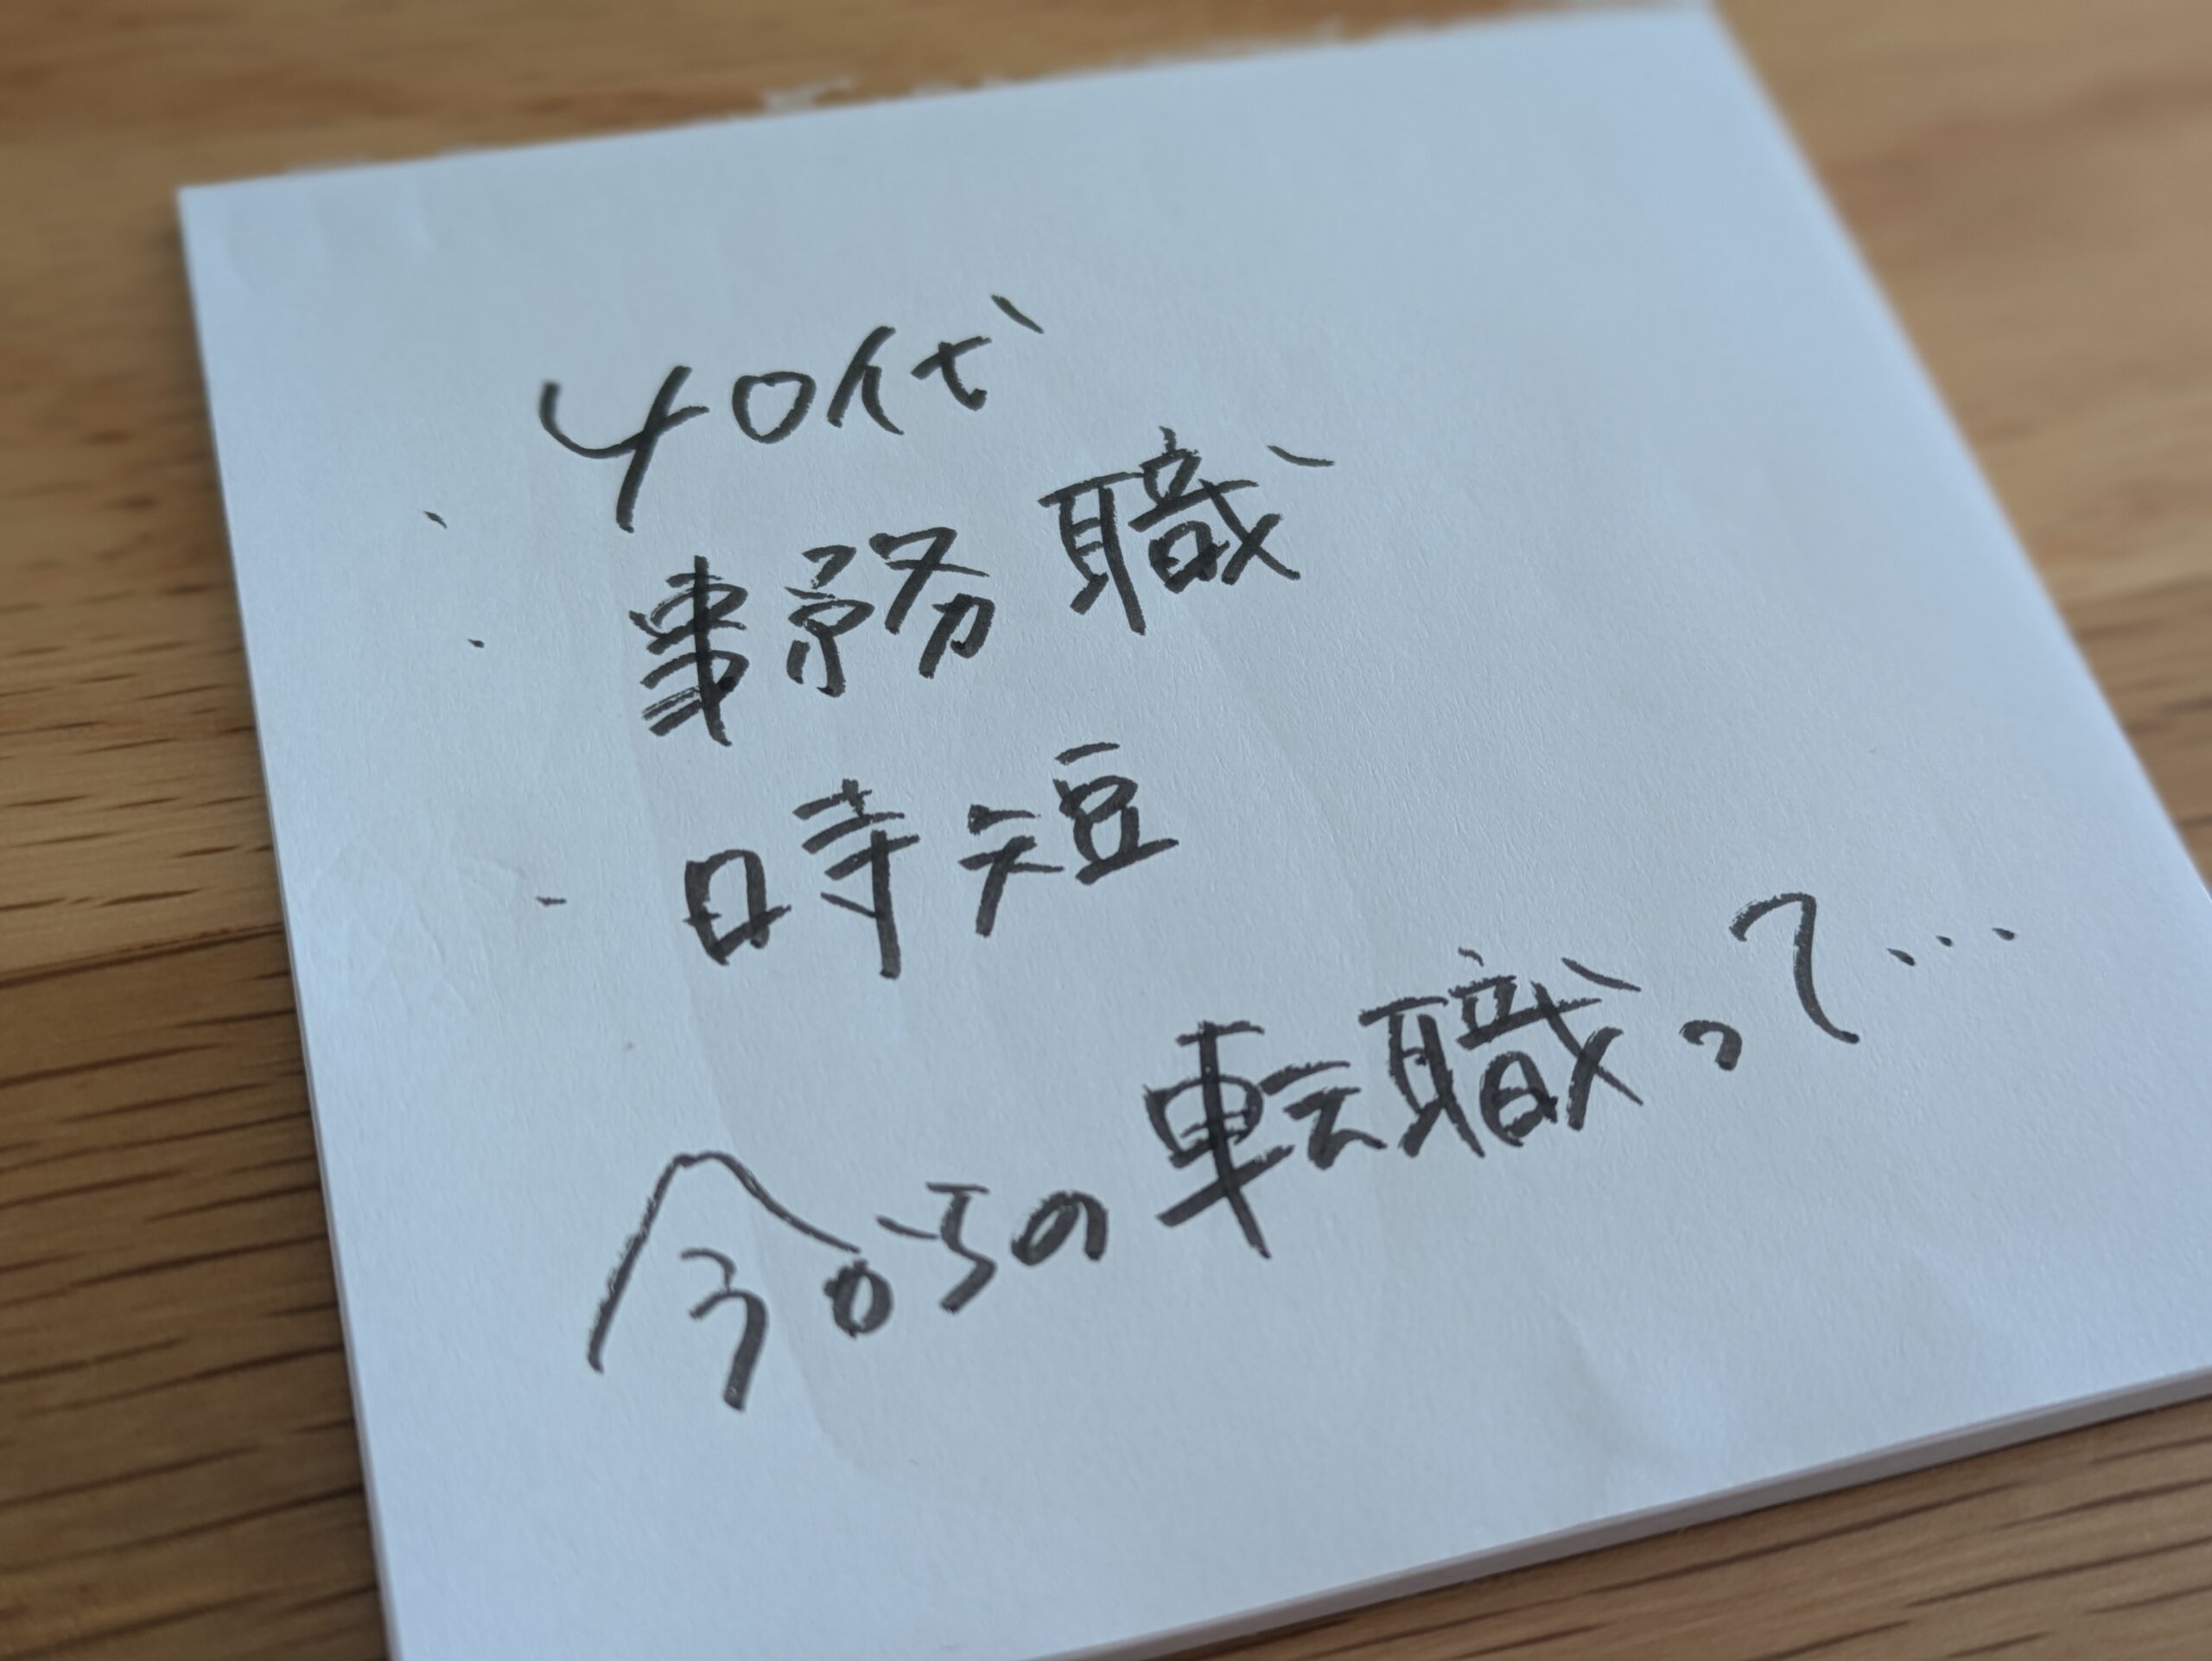 40代
・事務職
・時短
今からの転職って…